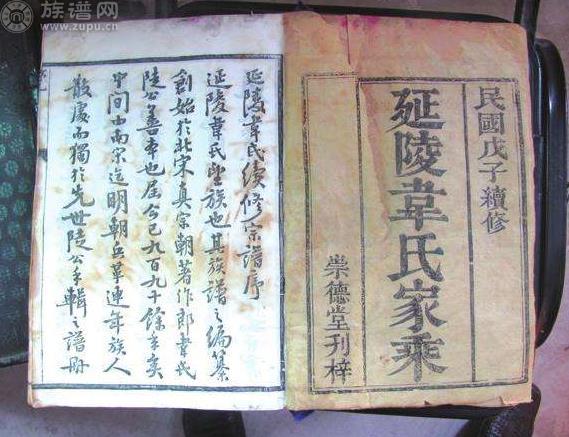 族谱网
www.zupu.cn
民國戊子續修
延陵韋氏家乘
崇德堂刊梓
延陵韋氏續修宗譜序
延陵韋氏望族也其族譜之編纂
創始於北宋真宗朝著作郎韋氏
陵公善本也居今已九百九十餘年矣
中間由南宋迄明朝兵革連年族人
散處而獨於先世陵公手輯之譜冊